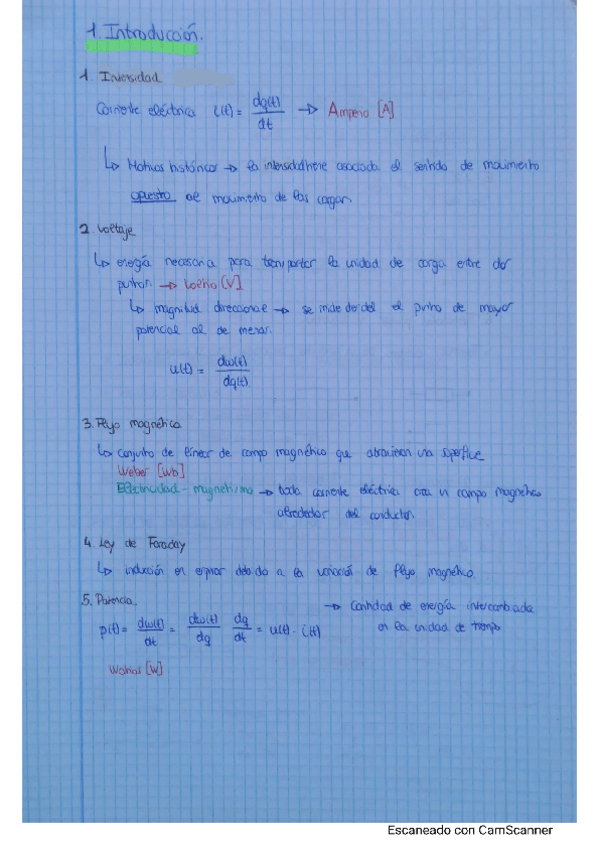 1. Introducción.
1. Intensidad
Corriente eléctrica i(t) = dq(t)/dt → Amperio [A]
↳ Motivos históricos → la intensidad tiene asociada el sentido de movimiento
opuesto al movimiento de las cargas.
2. Voltaje
↳ energía necesaria para transportar la unidad de carga entre dos
puntos. → Voltio [V]
↳ magnitud direccional → se mide desde el punto de mayor
potencial al de menor.
u(t) = dw(t)/dq(t)
3. Flujo magnético
↳ conjunto de líneas de campo magnético que atraviesan una superficie
Weber [Wb]
Electricidad - magnetismo → toda corriente eléctrica crea un campo magnético
alrededor del conductor.
4. Ley de Faraday
↳ inducción en espiras debido a la variación de flujo magnético.
5. Potencia → Cantidad de energía intercambiada
p(t) = dw(t)/dt = dw(t)/dq dq/dt = u(t) · i(t) en la unidad de tiempo
Watios [W]
Escaneado con CamScanner